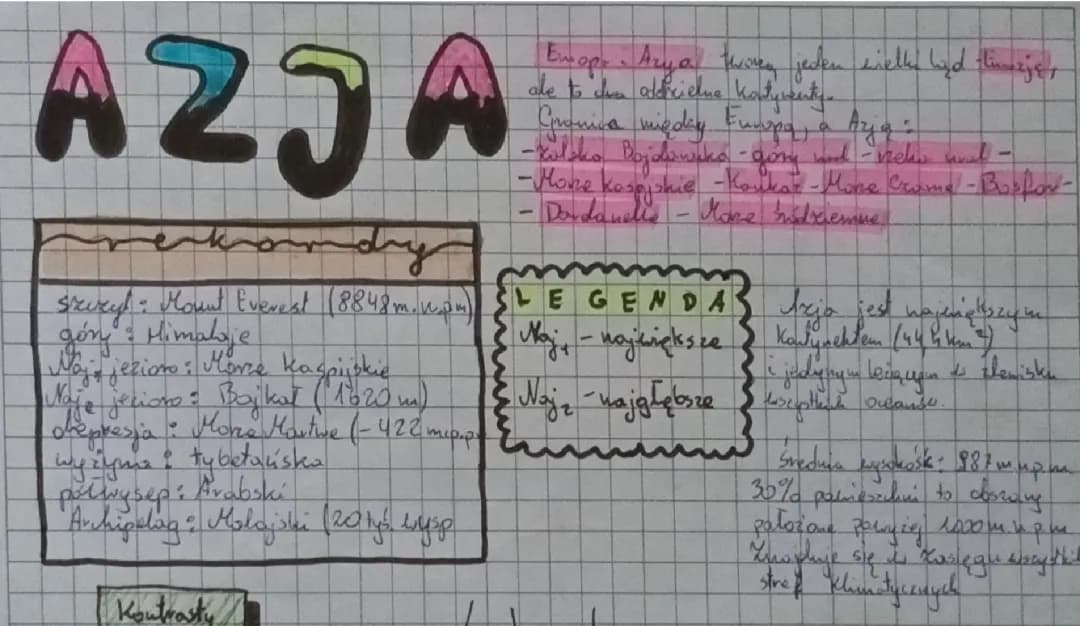 AZJA
Europa i Azja tworzą jeden wielki ląd Eurazję,
ale to dwa oddzielne kontynenty.
Granica między Europą, a Azją:
- Zatoka Bajdaracka - góry ural - rzeka ural -
- Morze kaspijskie - Kaukaz - Morze Czarne - Bosfor -
- Dardanelle - Morze śródziemne
rekordy
szczyt: Mount Everest (8848 m.n.p.m)
góry: Himalaje
Naj1 jezioro: Morze Kaspijskie
Naj2 jezioro: Bajkał (1620 m)
depresja: Morze Martwe (-422 m.p.p.
wyżyna: tybetańska
półwysep: Arabski
Archipelag: Malajski (20 tyś wysp
LEGENDA
Naj1 - największe
Naj2 - najgłębsze
Azja jest największym
kontynentem (44,6 km2)
i jedynym leżącym w zlewisku
wszystkich oceanów.
Średnia wysokość: 987 m.n.p.m
30% powierzchni to obszary
położone powyżej 1000 m.n.p.m
Znajduje się w zasięgu wszystkich
stref klimatycznych
Kontrasty